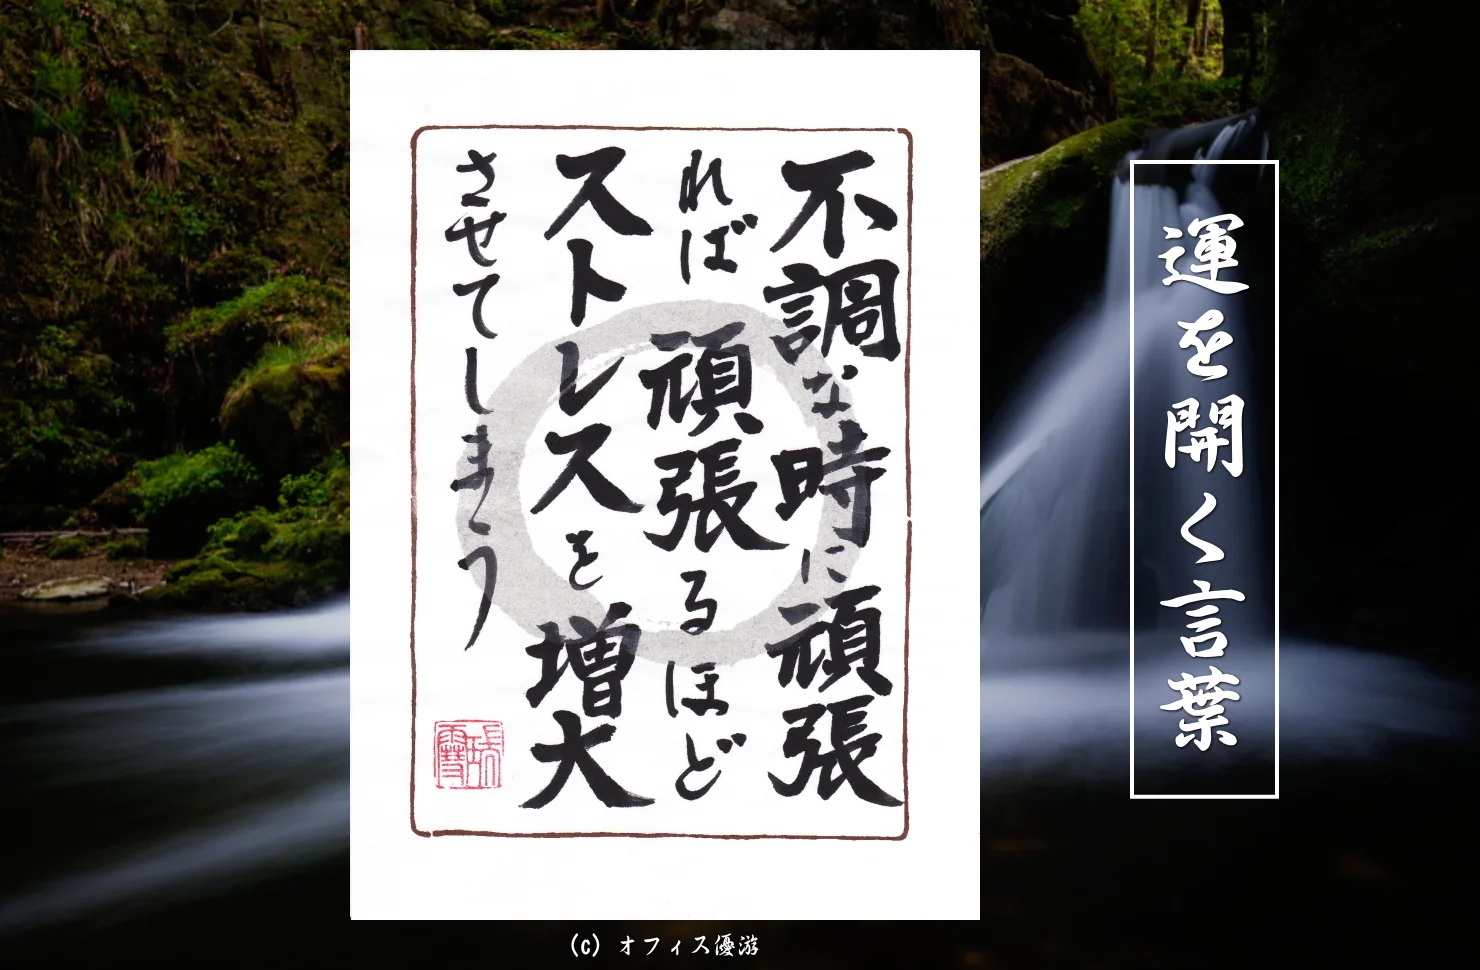 運を開く言葉
不調な時に頑張
れば頑張るほど
ストレスを増大
させてしまう
(c) オフィス優游